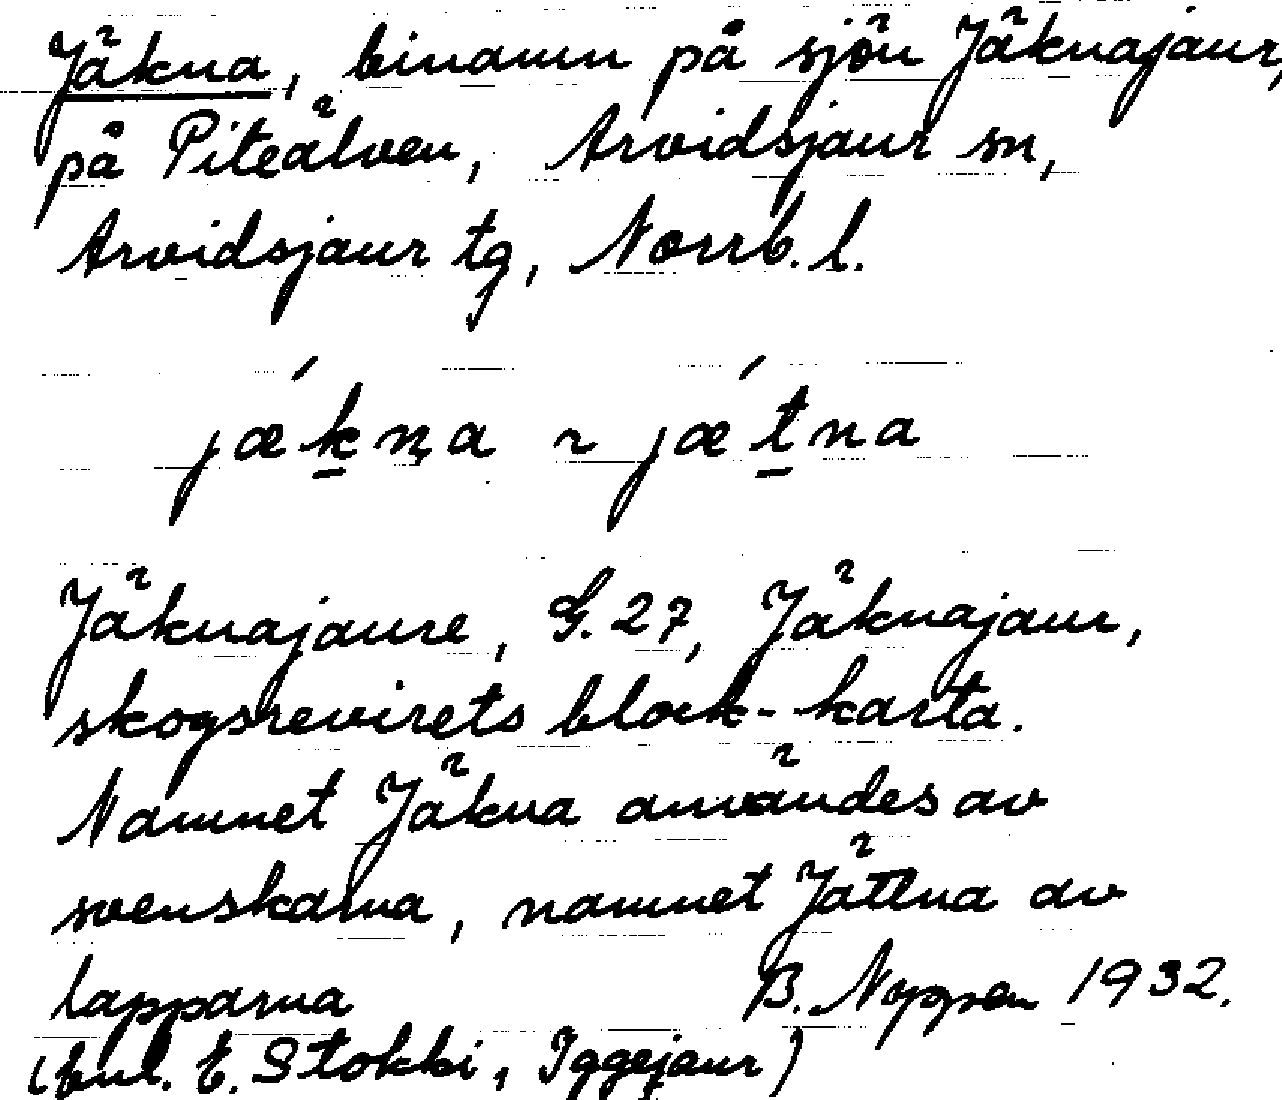 Jäkna, binamn på sjön Jäknajaur,
på Piteälven, Arvidsjaur sn,
Arvidsjaur tg, Norrb. l.
jǽk̲n̥a ~ jǽt̲na
Jäknajaure, G. 27, Jäknajaur,
skogsrevirets block-karta.
Namnet Jäkna användes av
svenskarna, namnet Jättna av
lapparna B. Nyppen 1932.
(enl. E. Stokki, Iggejaur)